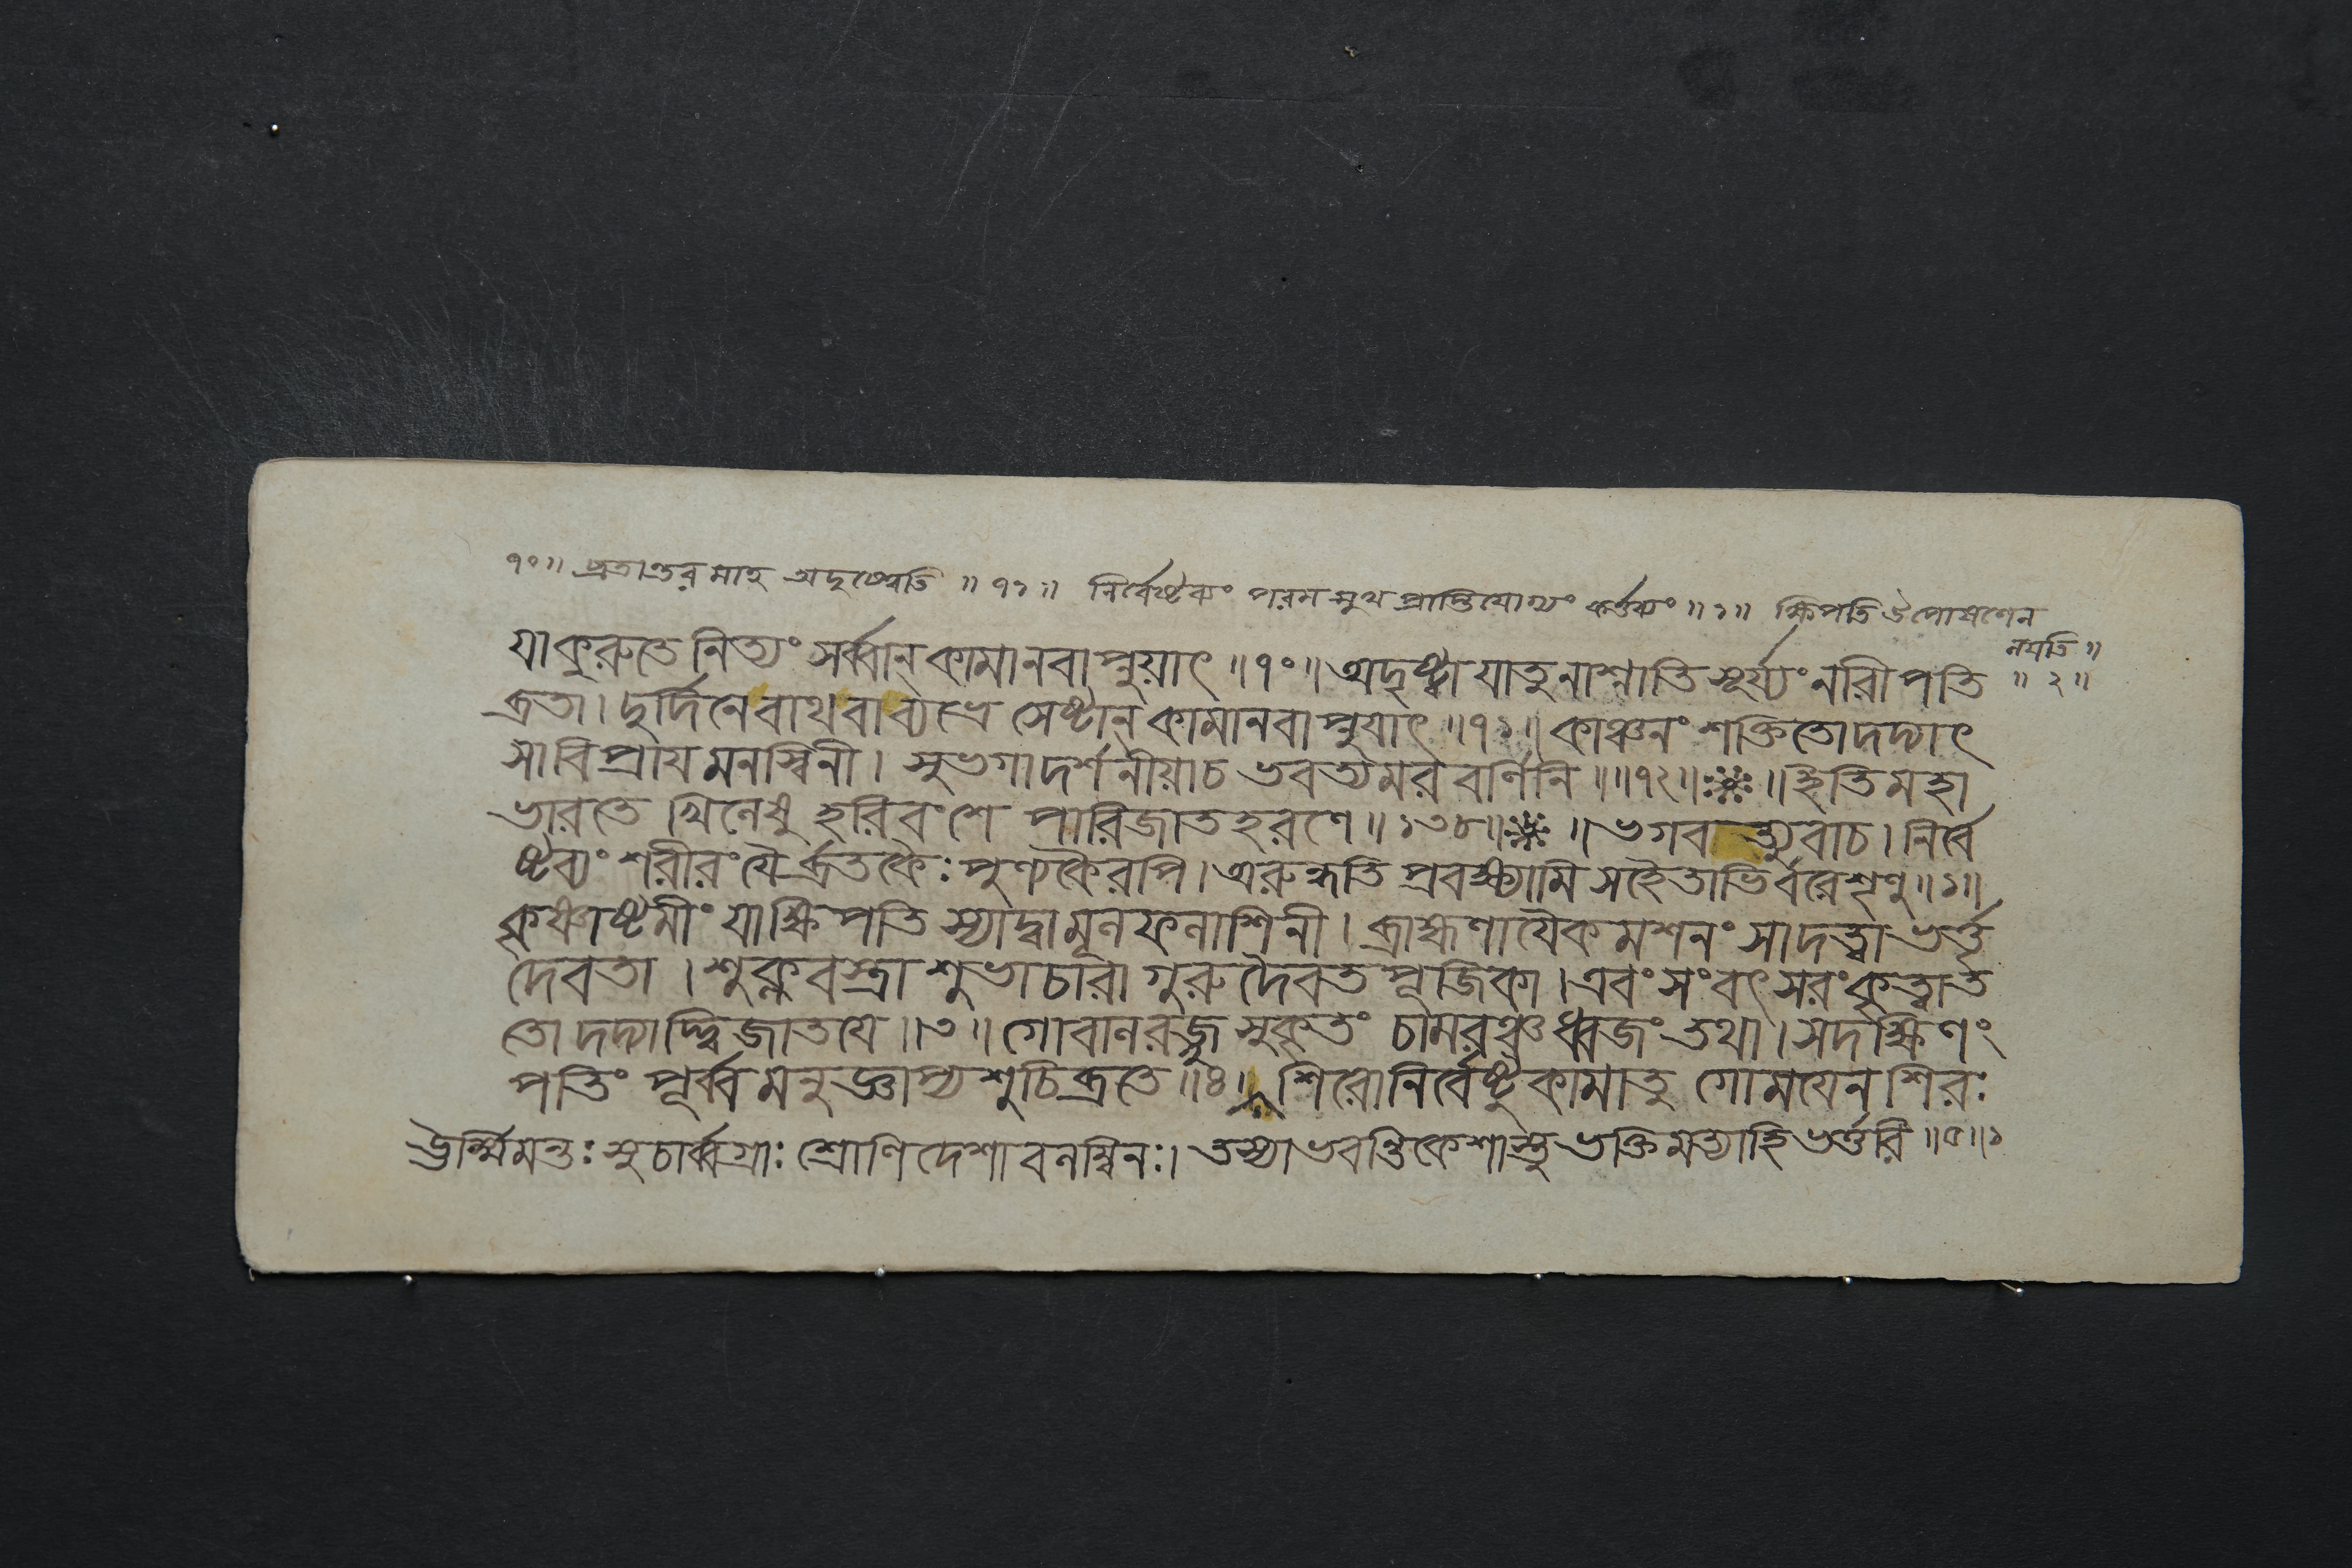 ৭০॥ ব্রতান্তরমাহ অদৃষ্ট্বেতি ॥ ৭১ ॥ নির্বেষ্টব্যং পরমসুখপ্রাপ্তিযোগ্যং কর্ত্তব্যং ॥ ১॥ ক্ষিপতি উপোষণেন
নয়তি ॥
॥ ২॥
যা কুরুতে নিত্যং সর্ব্বান্ কামানবাপ্নুয়াৎ ॥৭০॥ অদৃষ্ট্বা যাতুনাশ্নাতি সূর্য্যং নারী পতি
ব্রতা। দুর্দিনে বাথবাব্যভ্রে সেষ্টান্ কামানবাপ্নুযাৎ ॥৭১॥ কাঞ্চনং শক্তিতোদদ্যাৎ
সাবিপ্রায মনস্বিনী। সুভগাদর্শনীয়াচ ভবত্যমরবর্ণিনি ॥॥৭২॥ ॥ইতি মহা
ভারতে খিলেষু হরিবংশে পারিজাতহরণে ॥ ১৩৮॥ ॥ ভগবত্যুবাচ। নির্বে
ষ্টব্যং শরীরং যৈর্ব্রতকৈঃ পুণ্যকৈরপি। অরুন্ধতি প্রবক্ষ্যামি সহৈতাভির্বরেশৃণু॥১॥
কৃষ্ণাষ্টমীং যাক্ষিপতি স্যাদ্বামূলফলাশিনী। ব্রাহ্মণাযৈকমশনং সাদত্ত্বা ভর্ত্তৃ
দেবতা । শুক্লবস্ত্রা শুভাচারা গুরুদৈবতপূজিকা। এবংসংবৎসরংকৃত্বাত
তো দদ্যাদ্দ্বিজাতযে ॥৩॥ গোবালরজ্জুসুকৃতং চামরঞ্চধ্বজং তথা। সদক্ষিণং
পতিং পূর্ব্বমনুজ্ঞাপ্য শুচিব্রতে ॥৪॥ শিরোনির্বেষ্টুকামাতু গোমযেন শিরঃ
ঊর্ম্মিমন্তঃ সুচার্ব্বগ্রাঃ শ্রোণিদেশাবলম্বিনঃ। তস্যাভবন্তিকেশাস্তু ভক্তিমত্যাহি ভর্ত্তরি ॥৫॥১